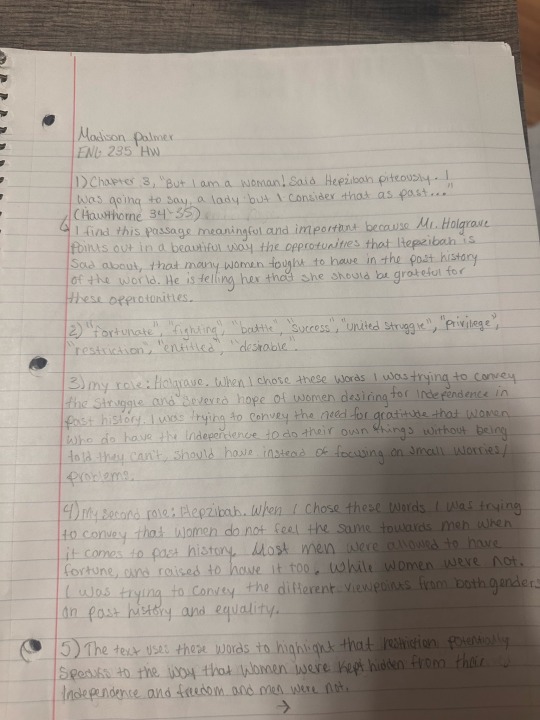 Madison Palmer
ENG 235 HW
1) Chapter 3, "But I am a woman! Said Hepzibah piteously. I
was going to say, a lady but I consider that as past..."
(Hawthorne 34-35)
I find this passage meaningful and important because Mr. Holgrave
points out in a beautiful way the opprotunities that Hepzibah is
sad about, that many women fought to have in the past history
of the world. He is telling her that she should be grateful for
these opprotunities.
2) "fortunate", "fighting", "battle", "success", "united struggle", "privilege",
"restriction", "entitled", "desirable".
3) my role: Holgrave. When I chose these words I was trying to convey
the struggle and severed hope of women desiring for independence in
past history. I was trying to convey the need for gratitude that women
who do have the independence to do their own things without being
told they can't, should have instead of focusing on small worries/
problems.
4) My second role: Hepzibah. When I chose these words I was trying
to convey that women do not feel the same towards men when
it comes to past history. Most men were allowed to have
fortune, and raised to have it too, while women were not.
I was trying to convey the different viewpoints from both genders
on past history and equality.
5) The text uses these words to highlight that restriction potentially
speaks to the way that women were kept hidden from their
independence and freedom and men were not.
→